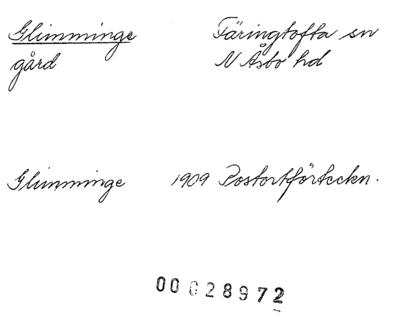 Glimminge Färingtofta sn
gård N Åsbo hd
Glimminge 1909 Postortförteckn.
00028972